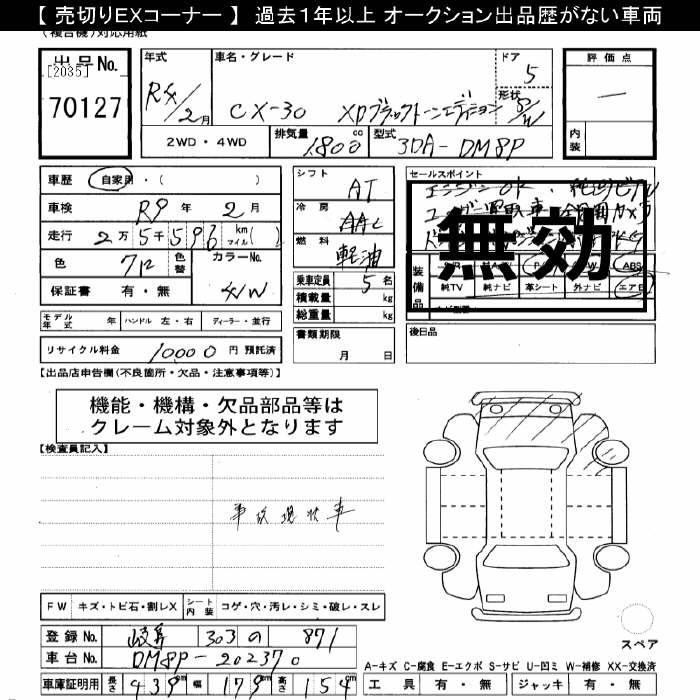 【 売切りEXコーナー 】 過去1年以上 オークション出品歴がない車両
(複合機)対応用紙
出品No. [2035] 70127
年式 R4/2月
車名・グレード CX-30 XDブラックトーンエディション
ドア 5 形状 S/W
評価点 —
内装
2WD・4WD 排気量 1800 cc 型式 3DA-DM8P
車歴 自家用・( )
車検 R9年 2月
走行 2万5千596 km マイル( )
色 クロ 色替 カラーNo. 41W
保証書 有・無
シフト AT
冷房 AAC
燃料 軽油
乗車定員 5名
積載量 kg
総重量 kg
書類期限 月 日
セールスポイント
エンジンOK・純正ナビTV
無効
装備品 ABS
純TV 純ナビ 革シート 外ナビ エアB
モデル年式 年 ハンドル 左・右 ディーラー・並行
リサイクル料金 10000 円 預託済
後日品
【出品店申告欄(不良個所・欠品・注意事項等)】
機能・機構・欠品部品等は
クレーム対象外となります
【検査員記入】
事故現状車
FW キズ・トビ石・割レX シート内装 コゲ・穴・汚レ・シミ・破レ・スレ
スペア
登録No. 岐阜 303 の 871
車台No. DM8P-202370
A-キズ C-腐食 E-エクボ S-サビ U-凹ミ W-補修 XX-交換済
車庫証明用 長さ 439cm 幅 179cm 高さ 154cm
工具 有・無 ジャッキ 有・無